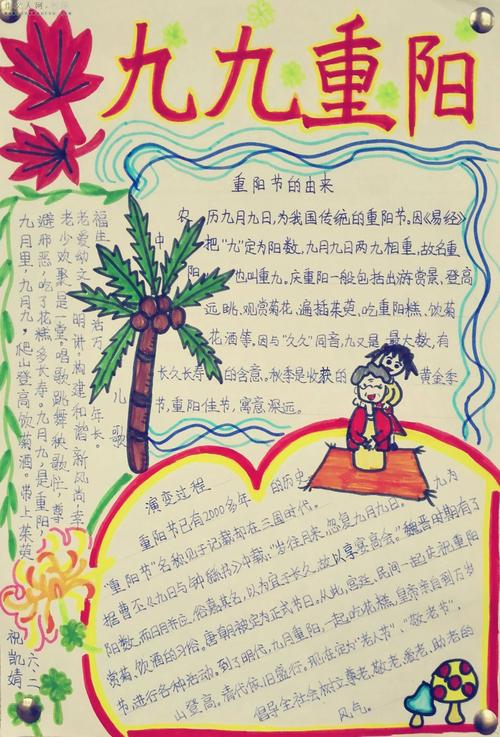 九九重阳
重阳节的由来
农历九月九日,为我国传统的重阳节。因《易经》
中把“九”定为阳数,九月九日两九相重,故名重
阳,也叫重九。庆重阳一般包括出游赏景、登高
远眺、观赏菊花、遍插茱萸、吃重阳糕、饮菊
花酒等,因与“久久”同音,九又是最大数,有
长久长寿的含意。秋季是收获的黄金季
节,重阳佳节,寓意深远。
儿歌
九月里,九月九,爬山登高饮菊酒。带上茱萸
避邪恶,吃了花糕多长寿。九月九,是重阳,
老少欢聚是一堂。唱歌跳舞秧歌忙,尊
老爱幼文明讲。构建和谐新风尚,幸
福生活万年长。
演变过程
重阳节已有2000多年的历史,
“重阳节”名称见于记载却在三国时代。
据曹丕《九日与钟繇书》中载:“岁往月来,忽复九月九日。九为
阳数,而日月并应,俗嘉其名,以为宜于长久,故以享宴高会。”魏晋时期有了
赏菊、饮酒的习俗。唐朝被定为正式节日。从此,宫廷、民间一起庆祝重阳
节,进行各种活动。到了明代,九月重阳,一起吃花糕,皇帝亲自到万岁
山登高。清代依旧盛行。现在定为“老人节”、“敬老节”,
倡导全社会树立尊老、敬老、爱老、助老的
风气。
六、二
祝凯婧